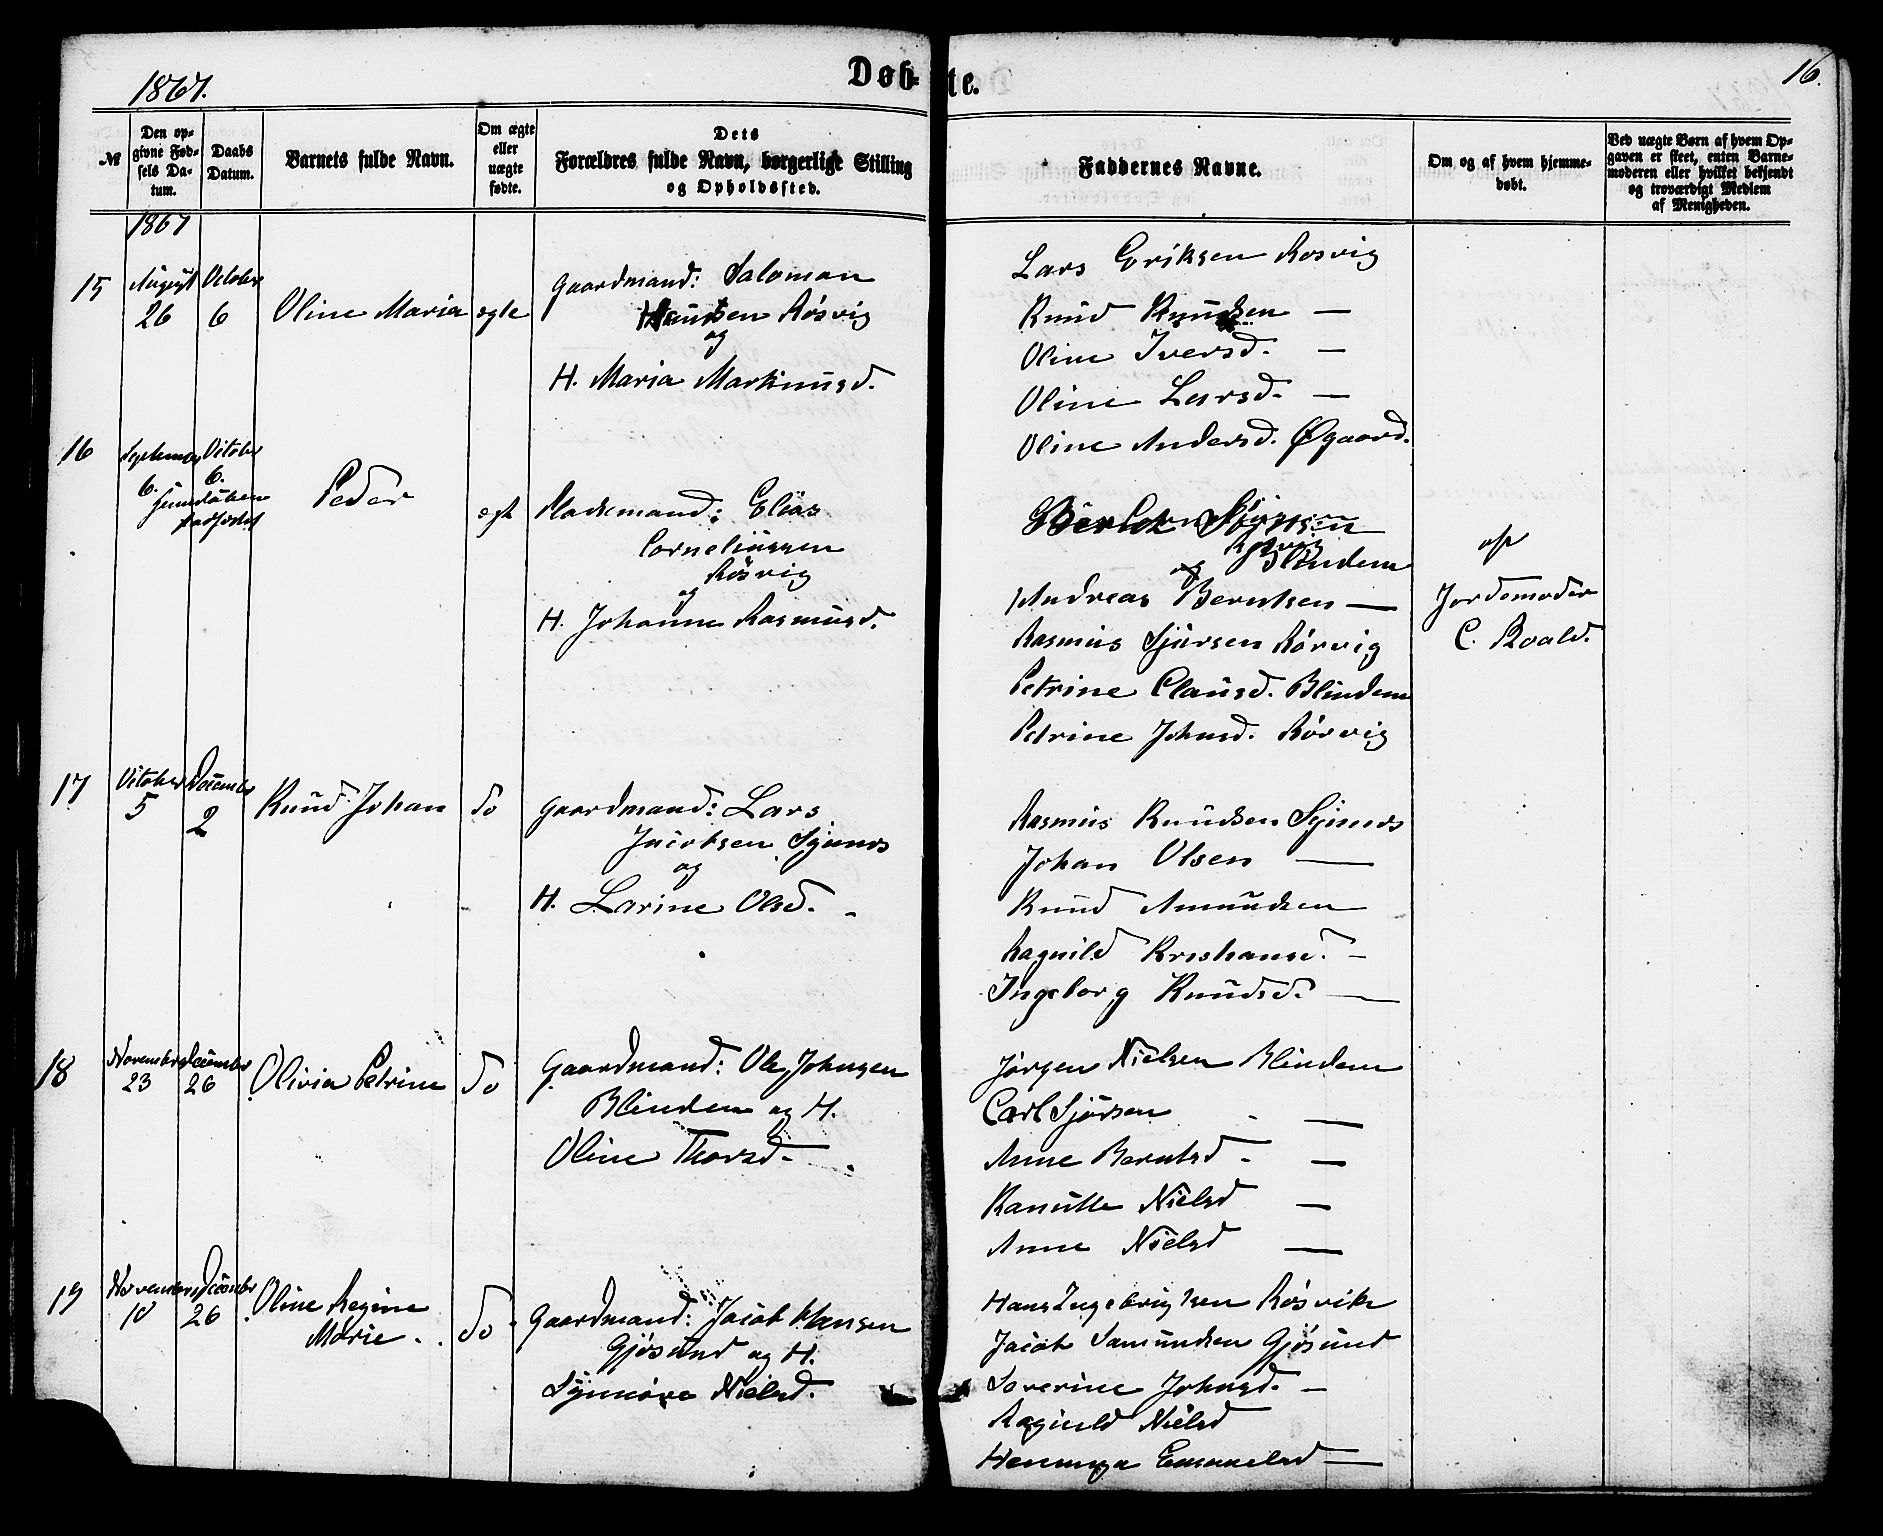 1867.
Døb-
te.
16.
№
Den op-
givne Fød-
sels Da-
tum.
Daabs
Datum.
Barnets fulde Navn.
Om ægte
eller
uægte
fødte.
Dets
Forældres fulde Navn, borgerlige Stilling
og Opholdssted.
Faddernes Navne.
Om og af hvem hjemme-
døbt.
Ved uægte Børn af hvem Op-
gaven er skeet, enten Barne-
moderen eller hvilket bekjendt
og troværdigt Medlem
af Menigheden.
1867
15
August
26
October
6
Oline Maria
egte
Gaardmand: Salomon
Knutsen Røsvig
og
H. Maria Markinusd.
Lars Eriksen Rosvig
Knud Knudsen —
Oline Iversd. —
Oline Larsd. —
Oline Andersd. Øgaard.
16
September
6.
October
6.
hjemdøben
stadfæstet
Peder
egt
Pladsmand: Elias
Corneliussen
Røsvig
og
H. Johanne Rasmusd.
Sjursen
og Blindem
Andreas Berntsen —
Rasmus Sjursen Rørvig
Petrine Clausd. Blindem
Petrine Johnsd. Rørvig
af
Jordemoder
C. Roald.
17
October
5
December
2
Knud Johan
do
Gaardmand: Lars
Jacobsen Synnes
og
H. Larine Olsd.
Rasmus Knudsen Synnes
Johan Olsen —
Knud Amundsen
Ragnild Kristiansd. —
Ingeborg Knudsd. —
18
November
23
December
26
Olivia Petrine
do
Gaardmand: Ole Johnsen
Blindem og H.
Oline Thorsd.
Jørgen Nielsen Blindem
Carl Sjursen —
Anne Berntsd —
Kanutte Nielsd —
Anne Nielsd —
19
November
10
December
26
Oline Regine
Marie.
do
Gaardmand: Jacob Hansen
Gjøsund og H.
Synnøve Nielsd.
Hans Ingebrigtsen Røsvik
Jacob Samundsen Gjøsund
Severine Johnsd. —
Ragnild Nielsd
Emanuelsd —